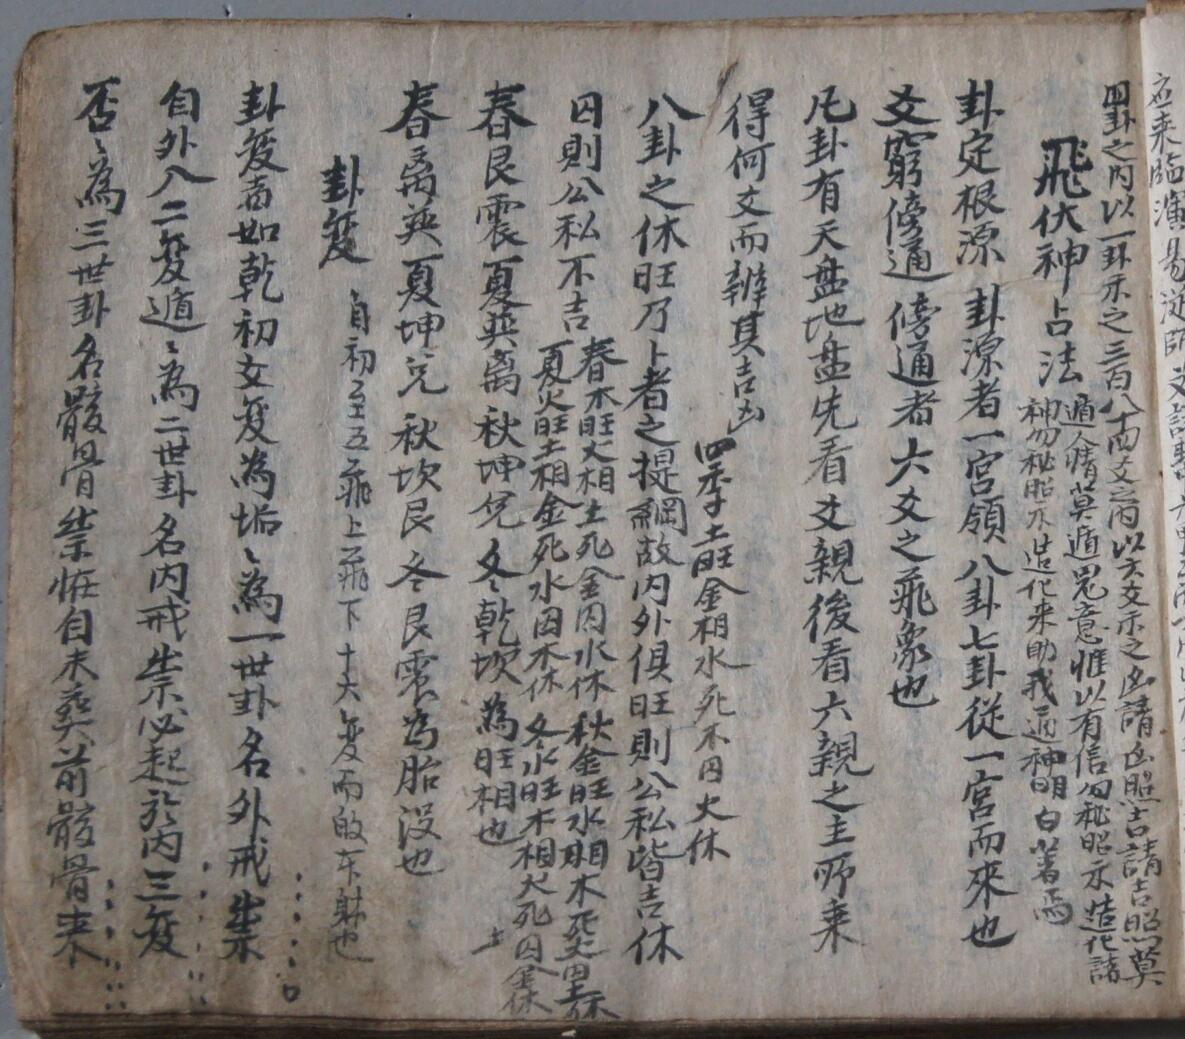 四卦之內以一卦示之三百八十四爻之內以六爻示之凶請凶照吉請吉照莫
遁人情莫遁鬼意惟以有信勿秘昭示造化諸
飛伏神占法
神勿秘昭示造化來助我通神明白著焉
卦定根源 卦源者一宮領八卦七卦從一宮而來也
爻窮傍通 傍通者六爻之飛象也
凡卦有天盤地盤先看爻親後看六親之主所乗
得何文而辨其吉凶
四季土旺金相水死木囚火休
八卦之休旺乃卜者之提綱故內外俱旺則公私皆吉休
囚則公私不吉
春木旺火相土死金囚水休 秋金旺水相木死火囚土休
夏火旺土相金死水囚木休 冬水旺木相火死土囚金休
春艮震夏巽离秋坤兌冬乾坎為旺相也
春离巽夏坤兌秋坎艮冬艮震為胎沒也
卦变 自初至五飛上飛下十六变而
卦变者如乾初爻变為垢〻為一世卦名外戒祟
自外入二变遁〻為二世卦名內戒祟必起於內三变
否〻為三世卦名骸骨祟恠自未葬前骸骨来